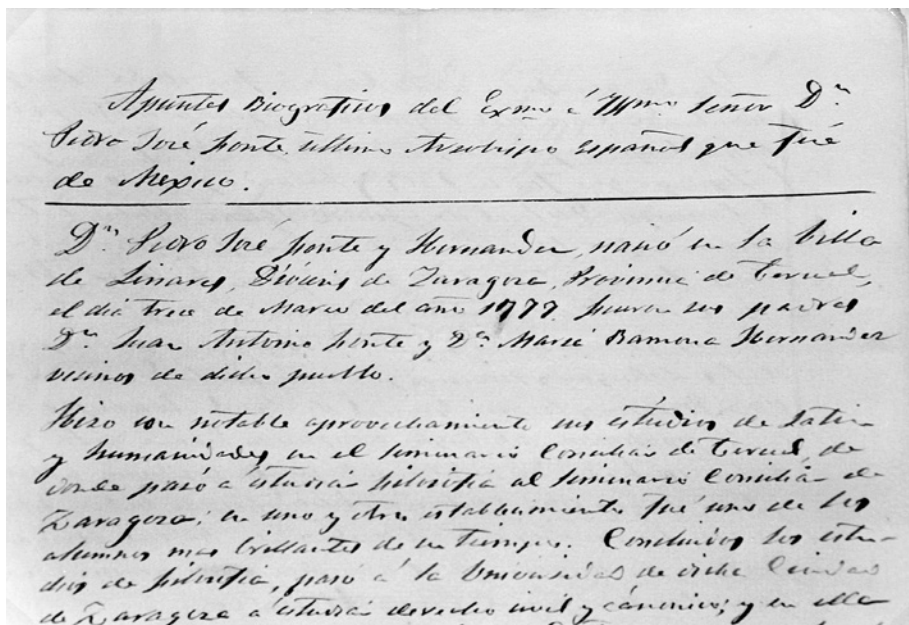 Apuntes Biograficos del Exmo é Yllmo Señor Dn
Pedro José Fonte último Arzobispo Español que fué
de Mexico.
Dn Pedro José Fonte y Hernandez, nació en la Villa
de Linares, Diócesis de Zaragoza, Provincia de Teruel,
el dia trece de Marzo del año 1777. Fueron sus padres
Dn Juan Antonio Fonte y Da Maria Ramona Hernandez
vecinos de dicho pueblo.
Hizo con notable aprovechamiento sus estudios de latin
y humanidades en el Seminario Conciliar de Teruel, de
donde pasó á estudiar filosofia al Seminario Conciliar de
Zaragoza; en uno y otro establecimiento fué uno de los
alumnos mas brillantes de su tiempo. Concluidos los estu-
dios de filosofia, pasó á la Universidad de dicha Ciudad
de Zaragoza á estudiar derecho civil y cánonico; y en ella